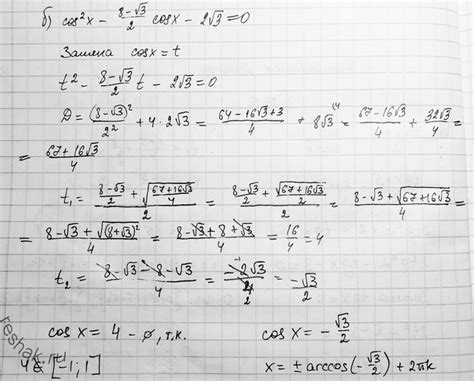 б) cos²x − (8−√3)/2 cosx − 2√3 = 0
Замена cosx = t
t² − (8−√3)/2 t − 2√3 = 0
D = (8−√3)²/2² + 4·2√3 = (64−16√3+3)/4 + 8√3 (4 = (67−16√3)/4 + 32√3/4 =
= (67+16√3)/4
t₁ = ((8−√3)/2 + √((67+16√3)/4))/2 = ((8−√3)/2 + √(67+16√3)/2)/2 = (8−√3+√(67+16√3))/4 =
= (8−√3+√((8+√3)²))/4 = (8−√3+8+√3)/4 = 16/4 = 4
t₂ = (8−√3−8−√3)/4 = −2√3/4 2 = −√3/2
cos x = 4 − ∅, т.к. cosx = −√3/2
4∉[−1;1] x = ± arccos(−√3/2) + 2πk
reshak.ru